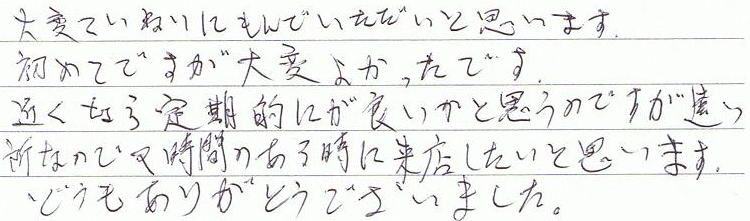 大変ていねいにもんでいただいと思います.
初めてですが大変よかったです.
近くなら定期的にが良いかと思うのですが遠い
所なので又時間のある時に来店したいと思います.
どうもありがとうございました。